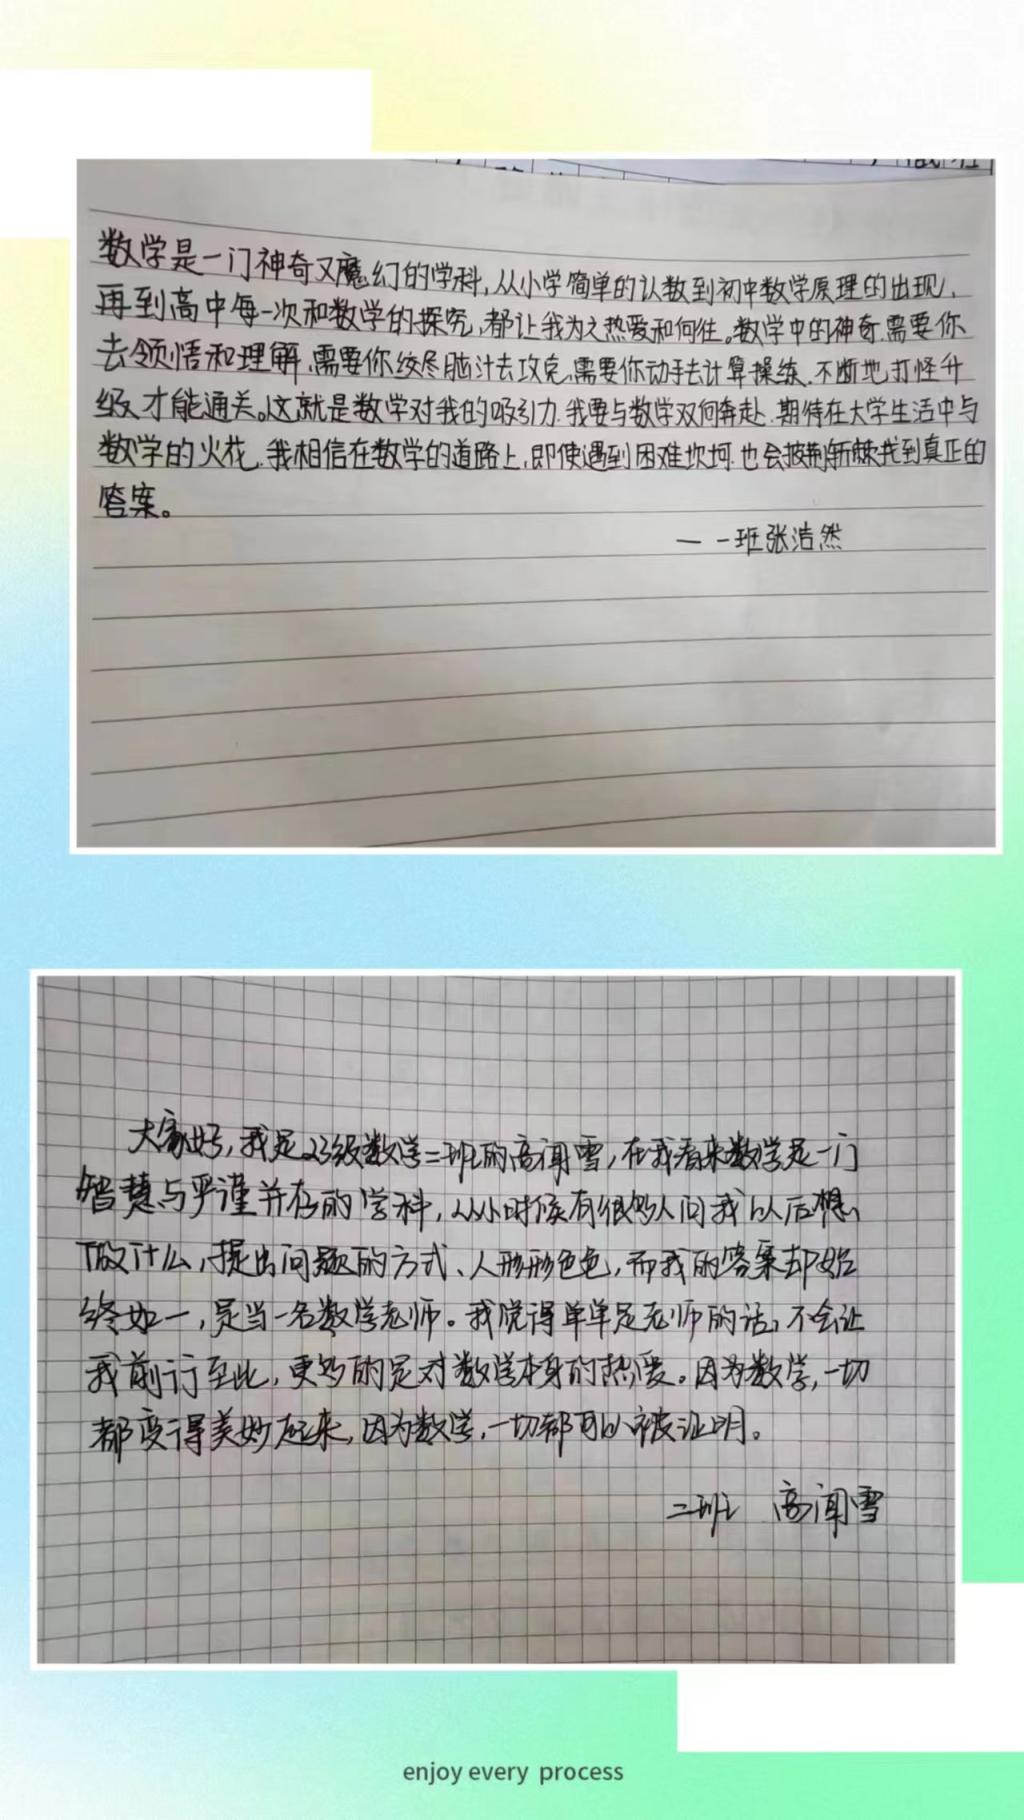 数学是一门神奇又魔幻的学科,从小学简单的认数到初中数学原理的出现,
再到高中每一次和数学的探究,都让我为之热爱和向往。数学中的神奇、需要你
去领悟和理解、需要你绞尽脑汁去攻克、需要你动手去计算操练、不断地打怪升
级、才能通关。这就是数学对我的吸引力、我要与数学双向奔赴、期待在大学生活中与
数学的火花、我相信在数学的道路上,即使遇到困难坎坷、也会披荆斩棘找到真正的
答案。
— 一班张浩然
大家好,我是23级数学二班的高闻雪,在我看来数学是一门
智慧与严谨并存的学科,从小时候有很多人问我以后想
做什么,提出问题的方式、人形形色色,而我的答案却始
终如一,是当一名数学老师。我觉得单单是老师的话,不会让
我前行至此,更多的是对数学本身的热爱。因为数学,一切
都变得美妙起来,因为数学,一切都可以被证明。
二班 高闻雪
enjoy every process